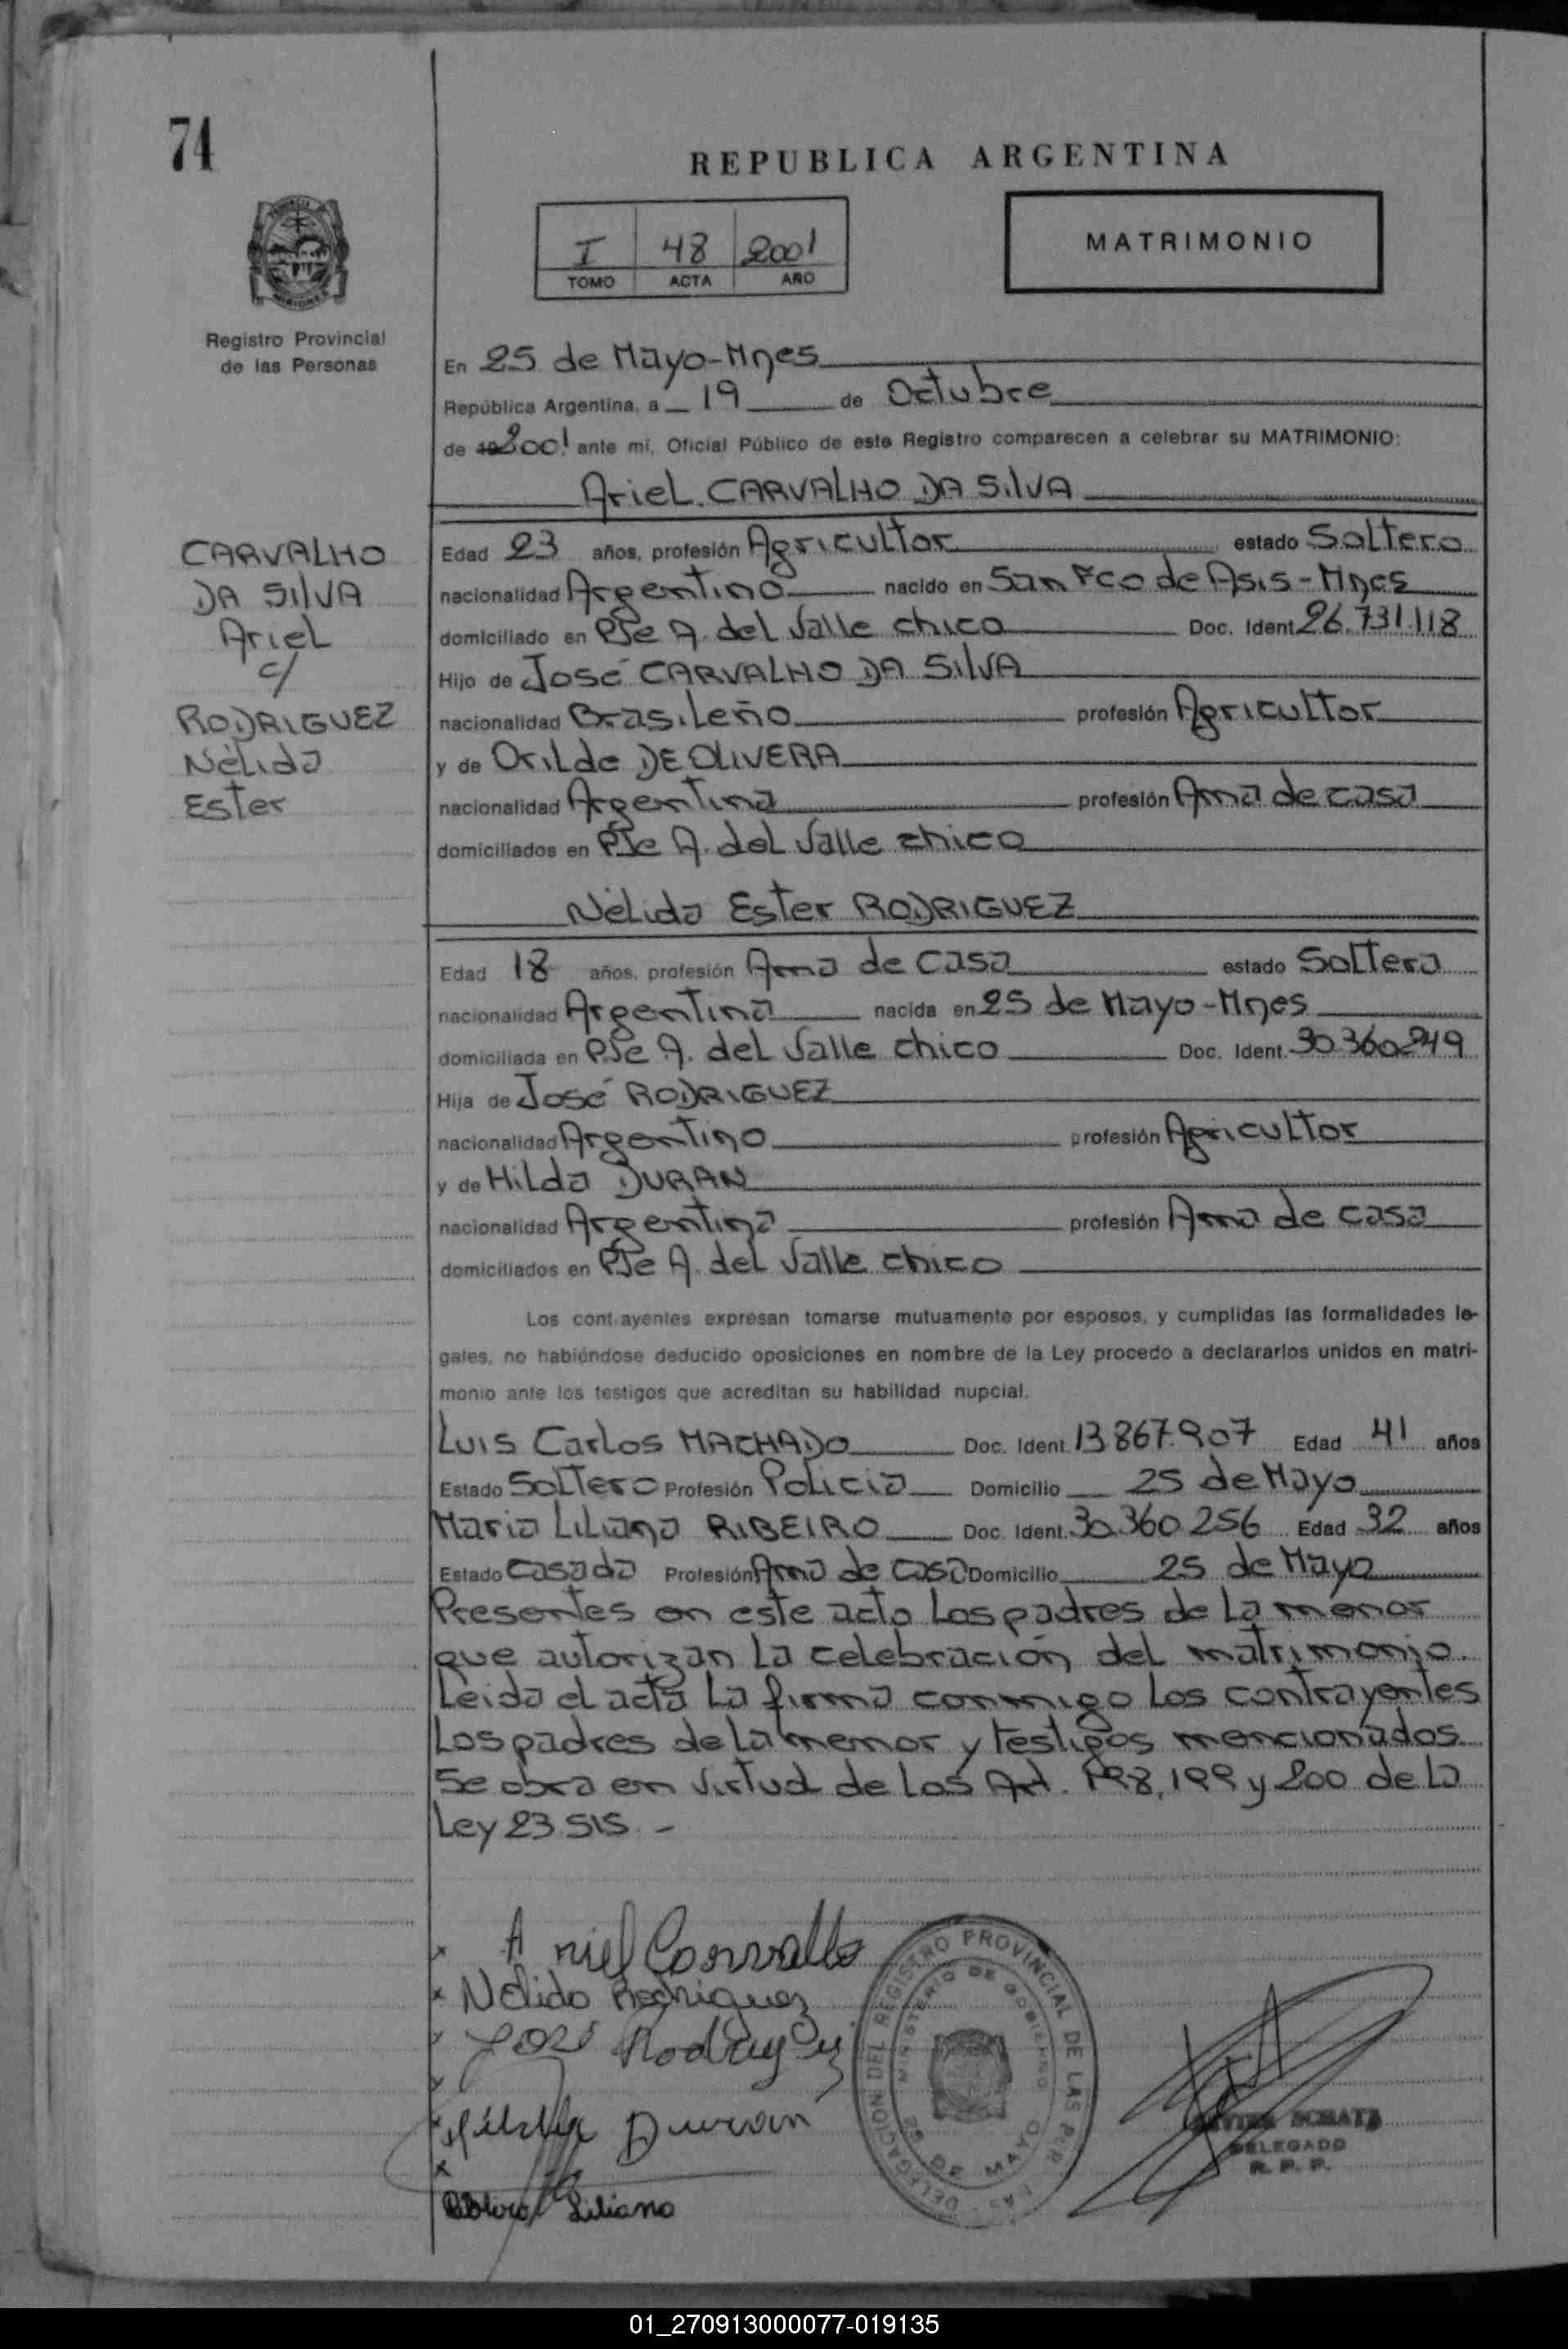 74
REPUBLICA ARGENTINA
I 48 2001
TOMO ACTA AÑO
MATRIMONIO
Registro Provincial
de las Personas
En 25 de Mayo-Mnes
República Argentina, a 19 de Octubre
de 19 2001 ante mí, Oficial Público de este Registro comparecen a celebrar su MATRIMONIO:
Ariel CARVALHO DA SILVA
CARVALHO
DA SILVA
Ariel
c/
RODRIGUEZ
Nélida
Ester
Edad 23 años, profesión Agricultor estado Soltero
nacionalidad Argentino nacido en San Fco de Asis-Mnes
domiciliado en PJe A. del Valle chico Doc. Ident. 26.731.118
Hijo de José CARVALHO DA SILVA
nacionalidad Brasileño profesión Agricultor
y de Orilde DE OLIVERA
nacionalidad Argentina profesión Ama de casa
domiciliados en PJe A. del Valle chico
Nélida Ester RODRIGUEZ
Edad 18 años, profesión Ama de casa estado Soltera
nacionalidad Argentina nacida en 25 de Mayo-Mnes
domiciliada en PJe A. del Valle chico Doc. Ident. 30.360.249
Hija de José RODRIGUEZ
nacionalidad Argentino profesión Agricultor
y de Hilda DURAN
nacionalidad Argentina profesión Ama de casa
domiciliados en PJe A. del Valle chico
Los contrayentes expresan tomarse mutuamente por esposos, y cumplidas las formalidades le-
gales, no habiéndose deducido oposiciones en nombre de la Ley procedo a declararlos unidos en matri-
monio ante los testigos que acreditan su habilidad nupcial.
Luis Carlos MACHADO Doc. Ident. 13.867.907 Edad 41 años
Estado Soltero Profesión Policia Domicilio 25 de Mayo
Maria Liliana RIBEIRO Doc. Ident. 30.360.256 Edad 32 años
Estado Casada Profesión Ama de casa Domicilio 25 de Mayo
Presentes en este acto Los padres de La menor
que autorizan La celebración del matrimonio.
Leida el acta La firma conmigo Los contrayentes
Los padres de La menor y testigos mencionados
Se obra en virtud de Los Art. 198, 199 y 200 de La
Ley 23.515. -
Ariel Carvalho
Nélida Rodriguez
José Rodriguez
Hilda Duran
Liliana
DELEGACION DEL REGISTRO PROVINCIAL DE LAS PER
MINISTERIO DE GOBIERNO
25 DE MAYO
DELEGADO
R. P. P.
01_270913000077-019135